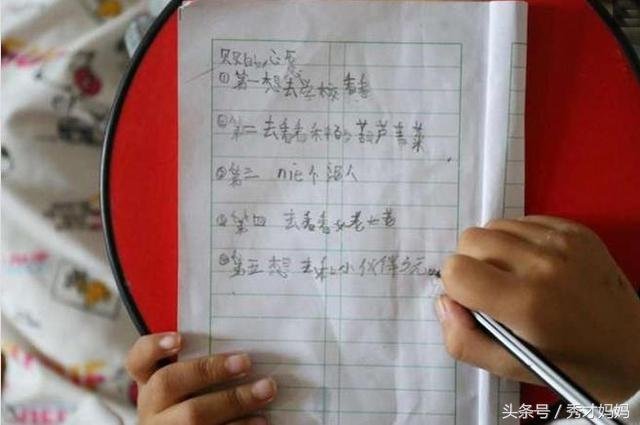 贝贝的心愿
①第一想去学校看看
②第二去看看我种的葫芦青菜
③第三 nie个泥人
④第四 去看看女老
⑤第五想 去和小伙伴多元
头条号 / 秀才妈妈